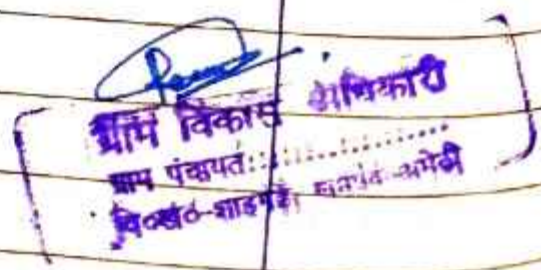 ग्राम विकास अधिकारी
ग्राम पंचायत:..................
वि०खं०-शाहगढ़, जनपद-अमेठी